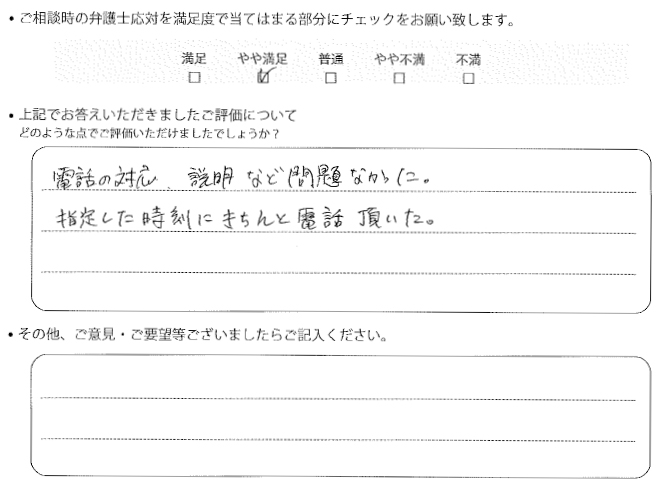 • ご相談時の弁護士応対を満足度で当てはまる部分にチェックをお願い致します。
満足 やや満足 普通 やや不満 不満
□ ☑ □ □ □
• 上記でお答えいただきましたご評価について
どのような点でご評価いただけましたでしょうか？
電話の対応、説明など問題なかった。
指定した時刻にきちんと電話頂いた。
• その他、ご意見・ご要望等ございましたらご記入ください。